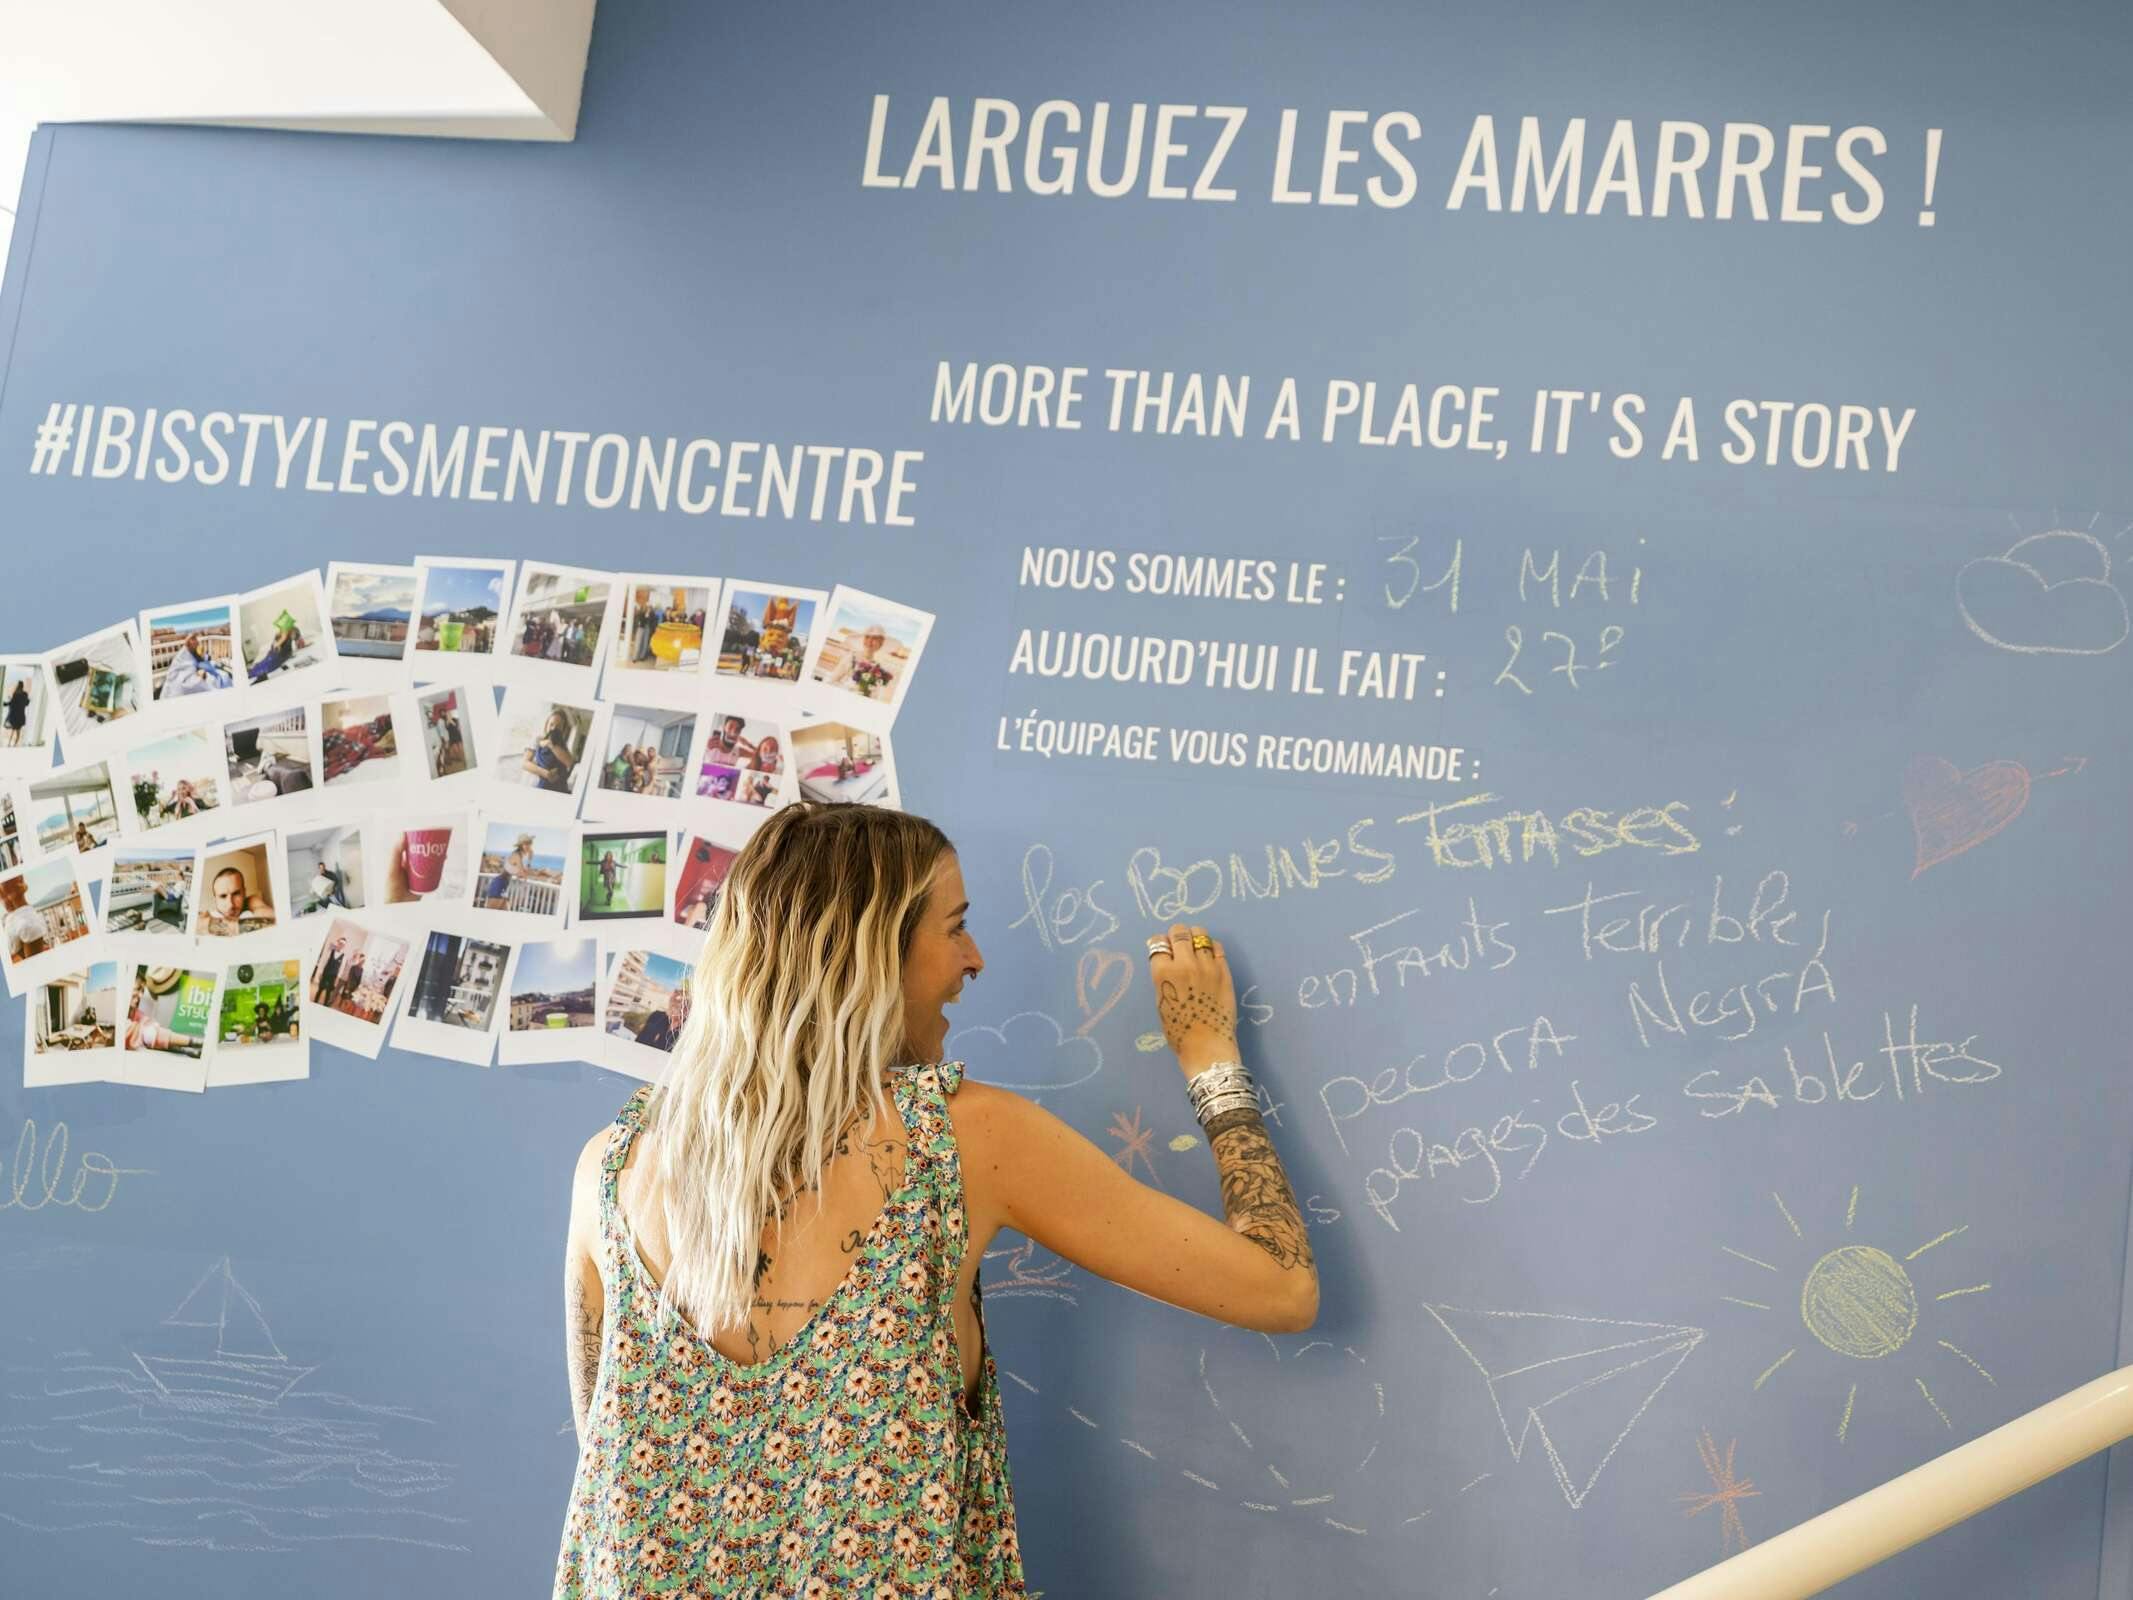 LARGUEZ LES AMARRES !
MORE THAN A PLACE, IT'S A STORY
#IBISSTYLESMENTONCENTRE
NOUS SOMMES LE : 31 MAi
AUJOURD'HUI IL FAIT : 27°
L'ÉQUIPAGE VOUS RECOMMANDE :
les BONNES TerrASSes :
enFANTS Terrible,
pecorA NegrA
plAges des SAblettes
enjoy
ibis
STYLES